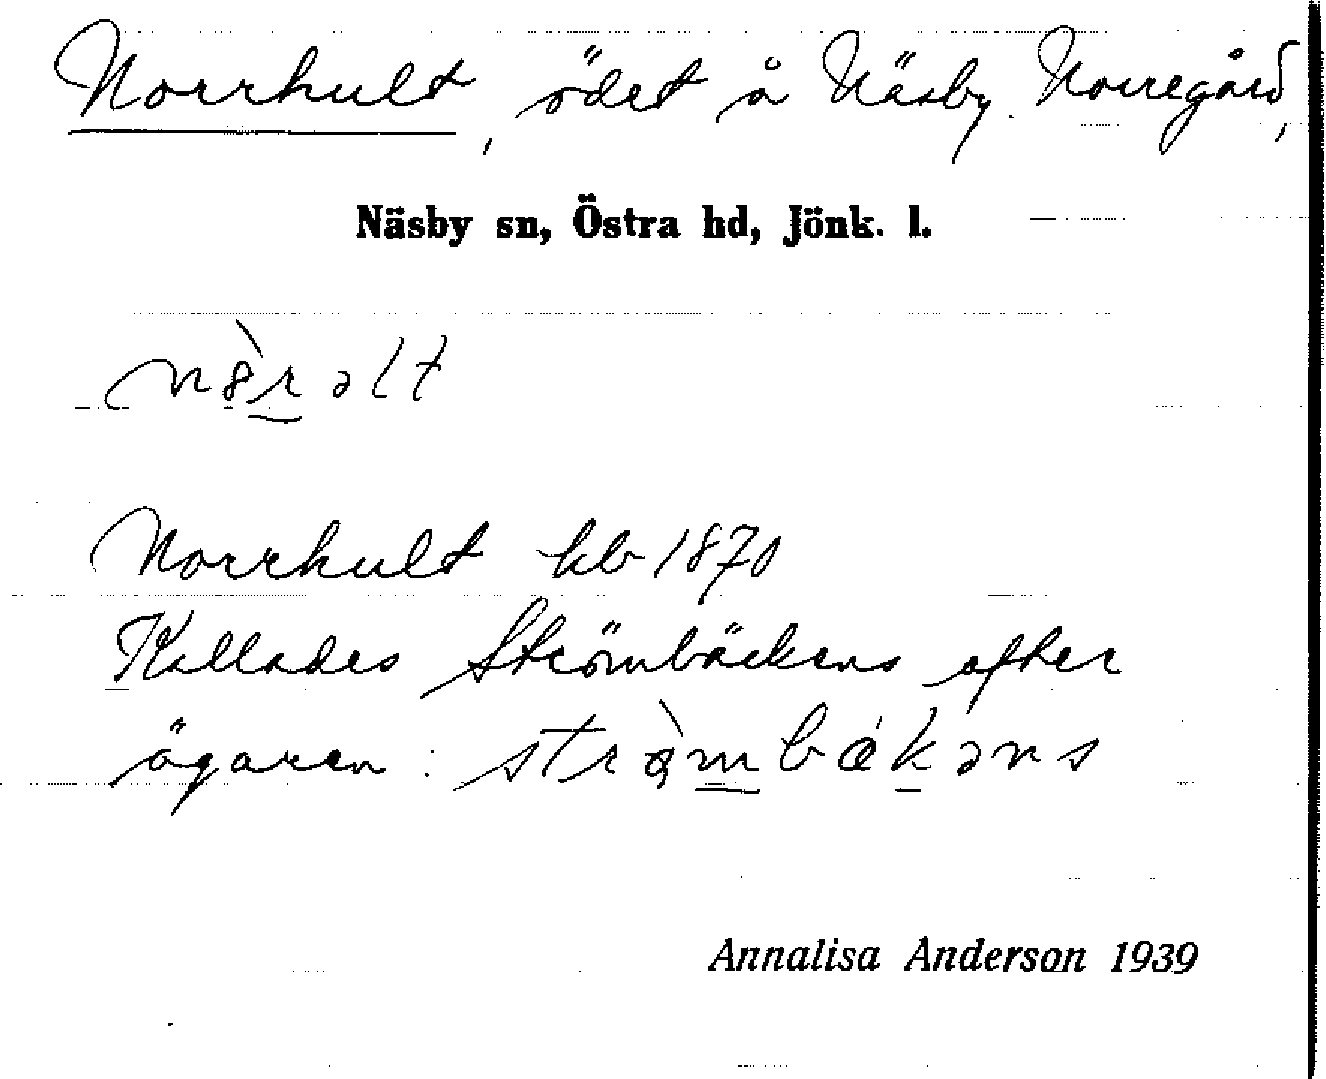 Norrhult, ödet å Näsby Norregård,
Näsby sn, Östra hd, Jönk. l.
Norrhult hb 1870
Kallades Strömbäckens efter
ägaren:
Annalisa Anderson 1939